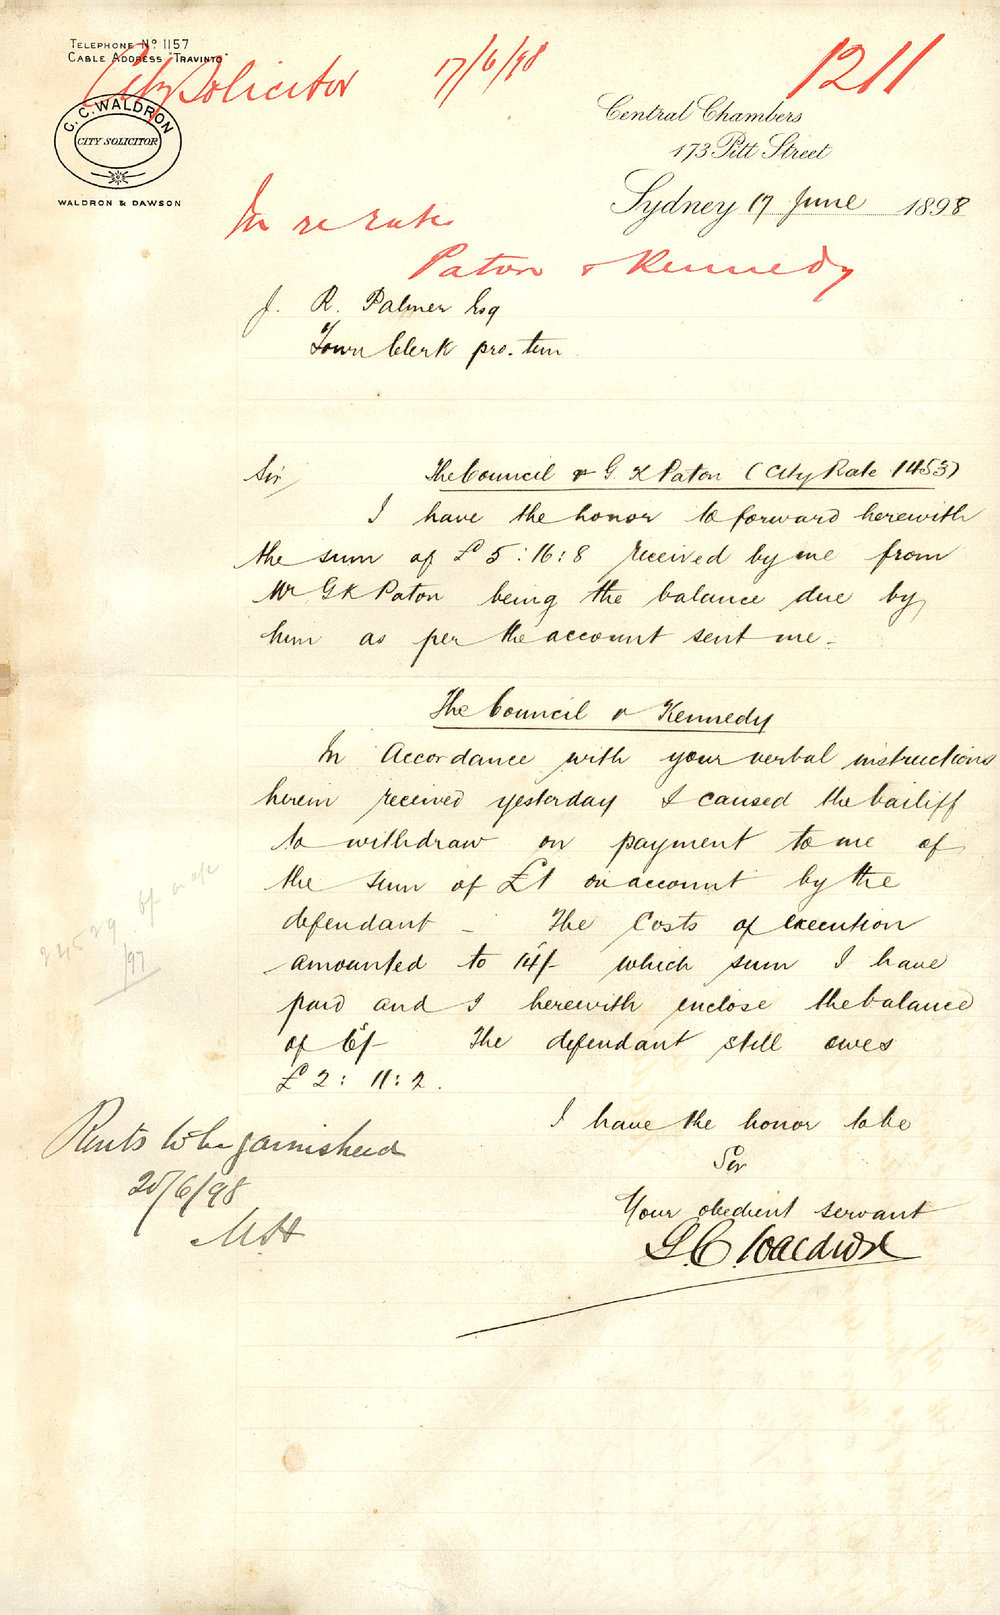 TELEPHONE Nº 1157
CABLE ADDRESS "TRAVINTO"
City Solicitor
17/6/98
1211
G. C. WALDRON
CITY SOLICITOR
WALDRON & DAWSON
Central Chambers
173 Pitt Street
Sydney 17 June 1898
In re rates
Paton & Kennedy
J. R. Palmer Esq
Town Clerk pro. tem
Sir
The Council v G. K Paton (City Rate 1453)
I have the honor to forward herewith
the sum of £5:16:8 received by me from
Mr G K Paton being the balance due by
him as per the account sent me.
The Council v Kennedy
In Accordance with your verbal instructions
herein received yesterday I caused the bailiff
to withdraw on payment to me of
the sum of £1 on account by the
defendant - The Costs of execution
amounted to 14/- which sum I have
paid and I herewith enclose the balance
of 6/- The defendant still owes
£2:11:2.
I have the honor to be
Sir
Your obedient servant
G. C. Waldron
24529
/97
Rents to be garnisheed
20/6/98